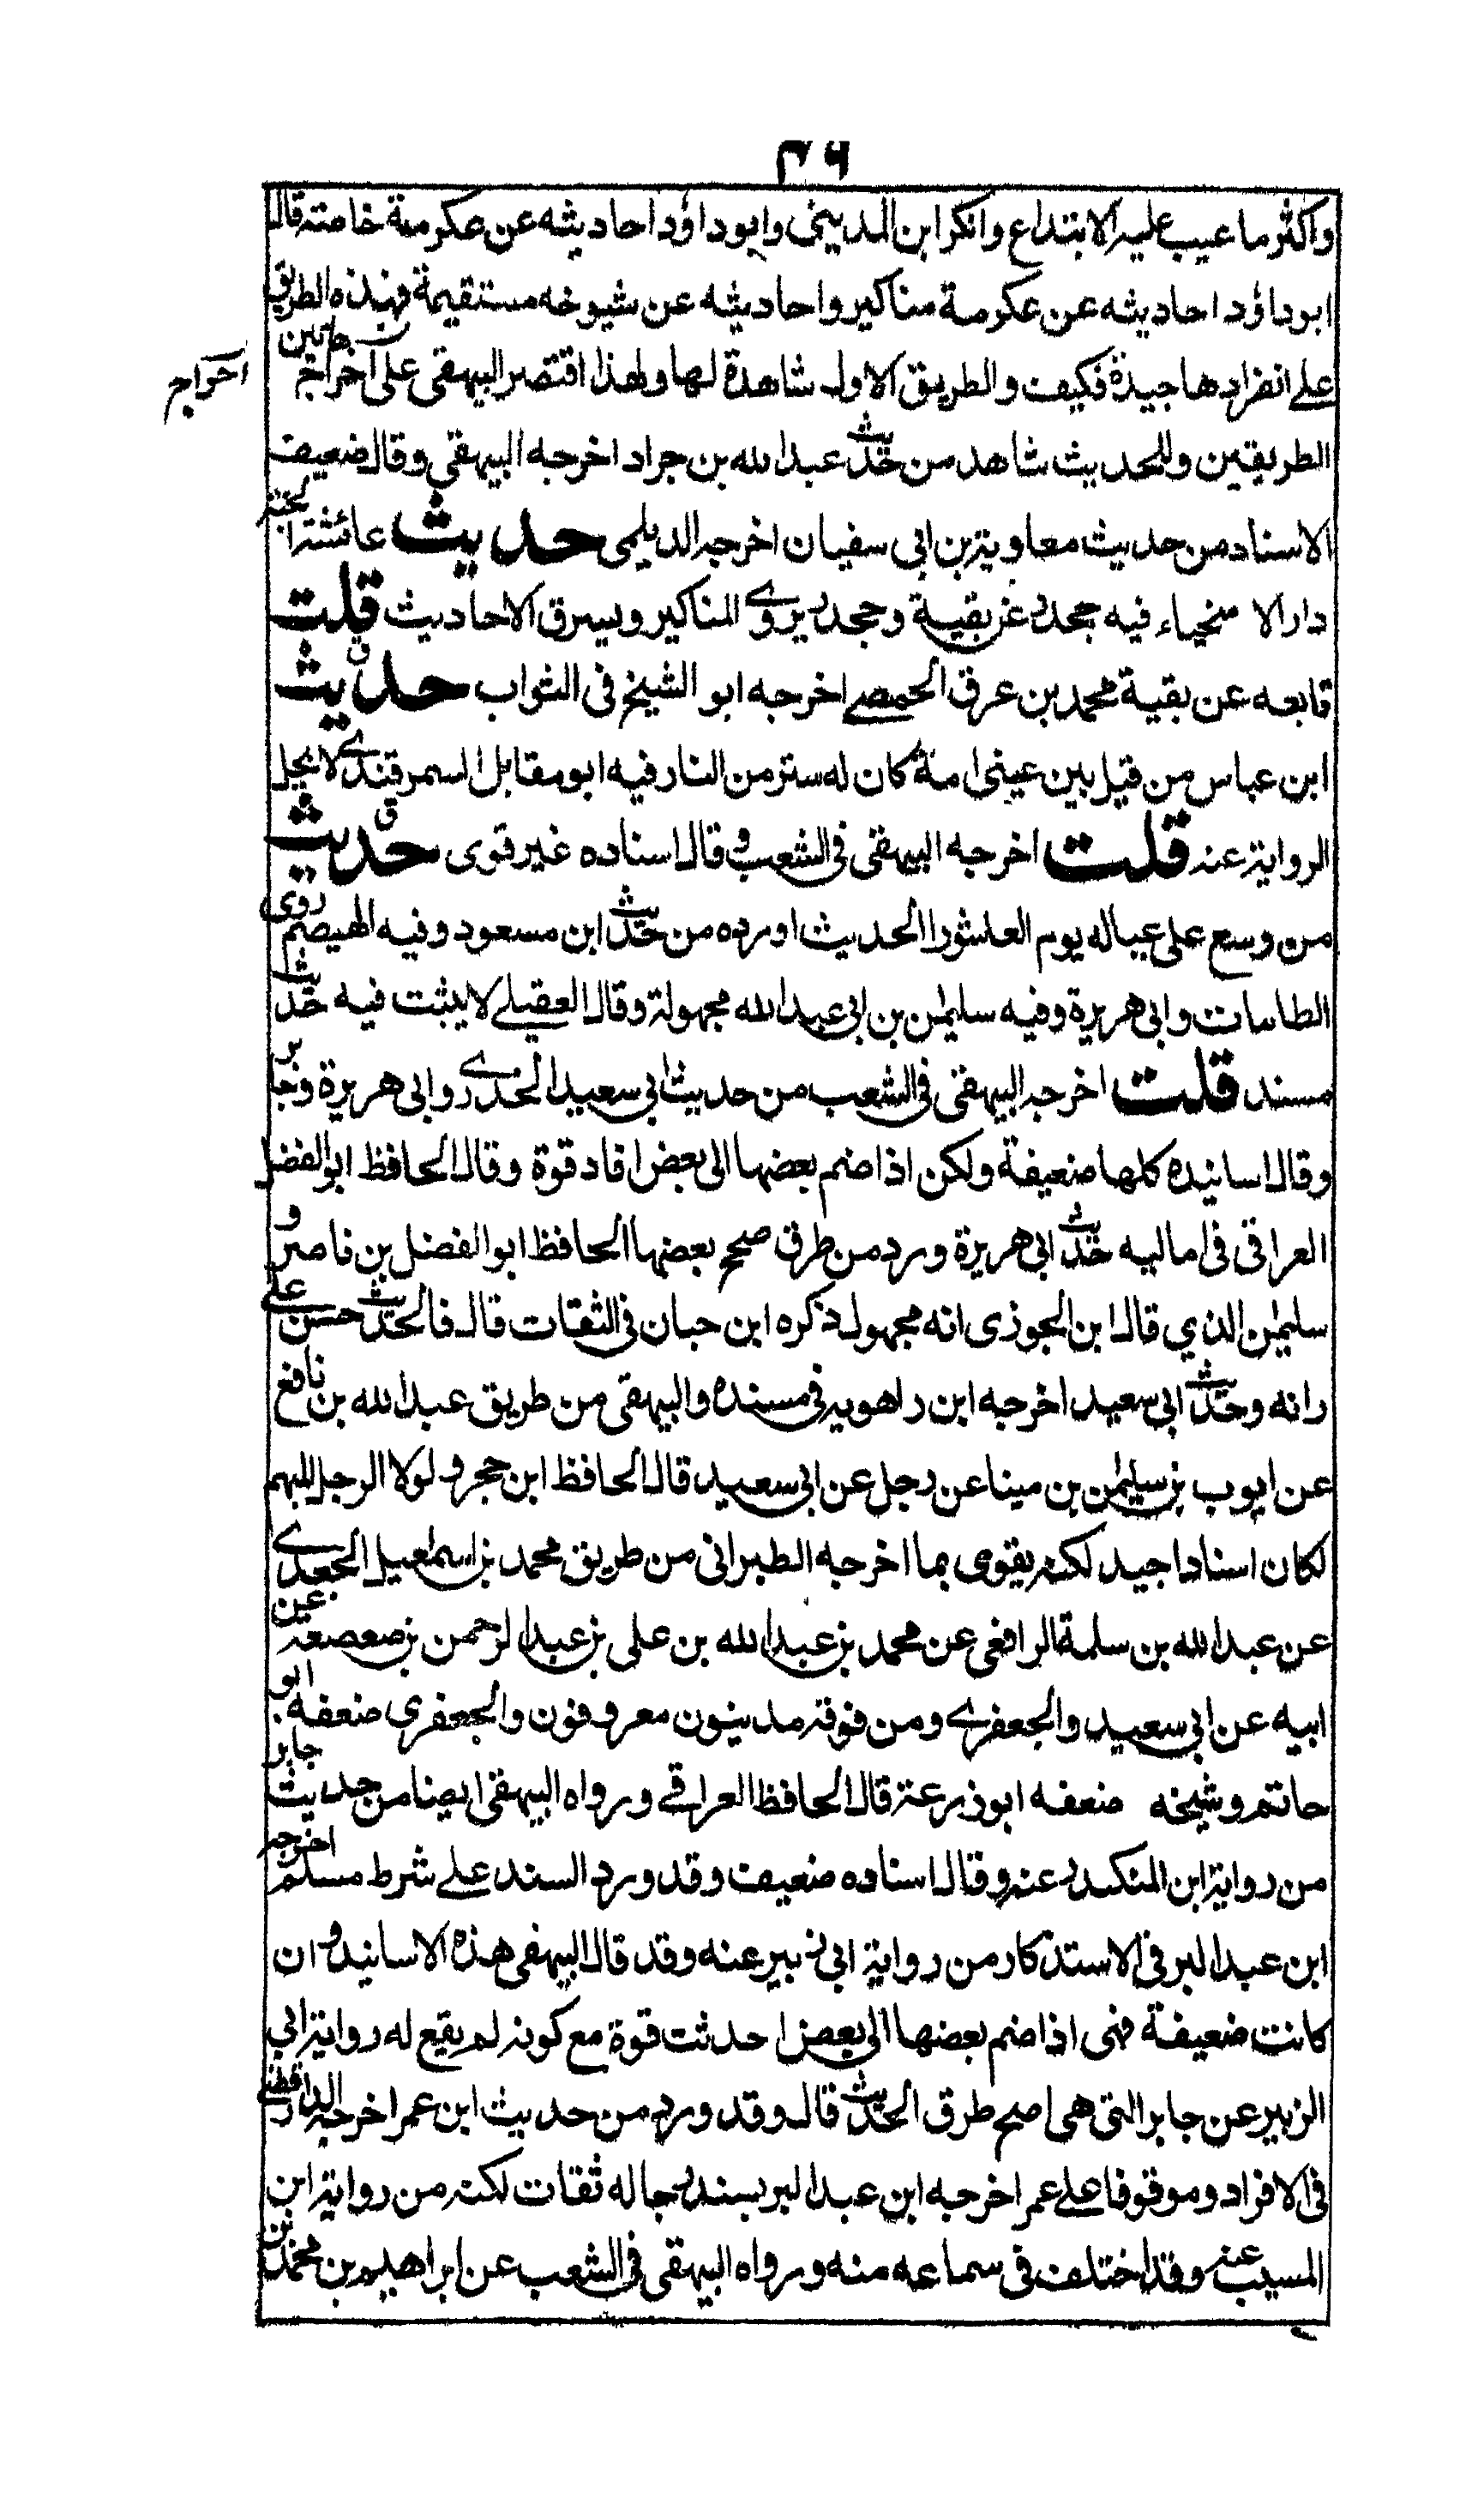 ٣٦
واكثر ما عيب عليه الابتداع وانكر ابن المديني وابو داؤد احاديثه عن عكرمة خاصته قال
ابو داؤد احاديثه عن عكرمة مناكير واحاديثه عن شيوخه مستقيمة فهذه الطريق
على انفرادها جيدة فكيف والطريق الاول شاهدة لها ولهذا اقتصر البيهقي على اخراج هاتين
اخراج
الطريقين وللحديث شاهد من حديث عبد الله بن جراد اخرجه البيهقي وقال ضعيف
الاسناد من حديث معاوية بن ابي سفيان اخرجه الديلمي حديث عائشة الجنة
دار الاسخياء فيه جحدر عن بقية وجحدر يروى المناكير ويسرق الاحاديث قلت
تابعه عن بقية محمد بن عرق الحمصي اخرجه ابو الشيخ في الثواب حديث ق
ابن عباس من قبل بين عيني امه كان له ستر من النار فيه ابو مقابل السمرقندي لا يحل
الرواية عنه قلت اخرجه البيهقي في الشعب وقال اسناده غير قوى حديث ق
من وسع على عياله يوم العاشورا الحديث اورده من حديث ابن مسعود وفيه الهيصم روى
الطامات وابي هريرة وفيه سليمن بن ابي عبد الله مجهولة وقال العقيلي لا يثبت فيه حديث
مسند قلت اخرجه البيهقي في الشعب من حديث ابي سعيد الخدري وابي هريرة وجابر
وقال اسانيده كلها ضعيفة ولكن اذا ضم بعضها الى بعض افاد قوة وقال الحافظ ابو الفضل
العراقي في اماليه حديث ابي هريرة ورد من طرق صحح بعضها الحافظ ابو الفضل بن ناصر و
سليمن الذي قال ابن الجوزى انه مجهول ذكره ابن حبان في الثقات قال فالحديث حسن على
رانه وحديث ابي سعيد اخرجه ابن راهويه في مسنده والبيهقي من طريق عبد الله بن نافع
عن ايوب بن سليمن بن مينا عن رجل عن ابي سعيد قال الحافظ ابن حجر ولولا الرجل المبهم
لكان اسنادا جيد لكنه يقوى بما اخرجه الطبرانى من طريق محمد بن اسمعيل الجعدي
عن عبد الله بن سلمة الرافعي عن محمد بن عبد الله بن على بن عبد الرحمن بن صعصعه عن
ابيه عن ابي سعيد والجعفري ومن فوقه مدينون معروفون والجعفرى ضعفه ابو
حاتم وشيخه ضعفه ابو زرعة قال الحافظ العراقي ورواه البيهقي ايضا من حديث جابر
من رواية ابن المنكدر عنه وقال اسناده ضعيف وقد ورد السند على شرط مسلم اخرجه
ابن عبد البر في الاستذكار من رواية ابي زبير عنه وقد قال البيهقي هذه الاسانيد وان
كانت ضعيفة فهى اذا ضم بعضها الى بعض احدثت قوة مع كونه لم يقع له رواية ابي
الزبير عن جابر التى هى اصح طرق الحديث قال وقد ورد من حديث ابن عمر اخرجه الدارقطني
في الافراد وموقوفا على عمر اخرجه ابن عبد البر بسند رجاله ثقات لكنه من رواية ابن
المسيب عنه وقد اختلف في سماعه منه ورواه البيهقي في الشعب عن ابراهيم بن محمد بن